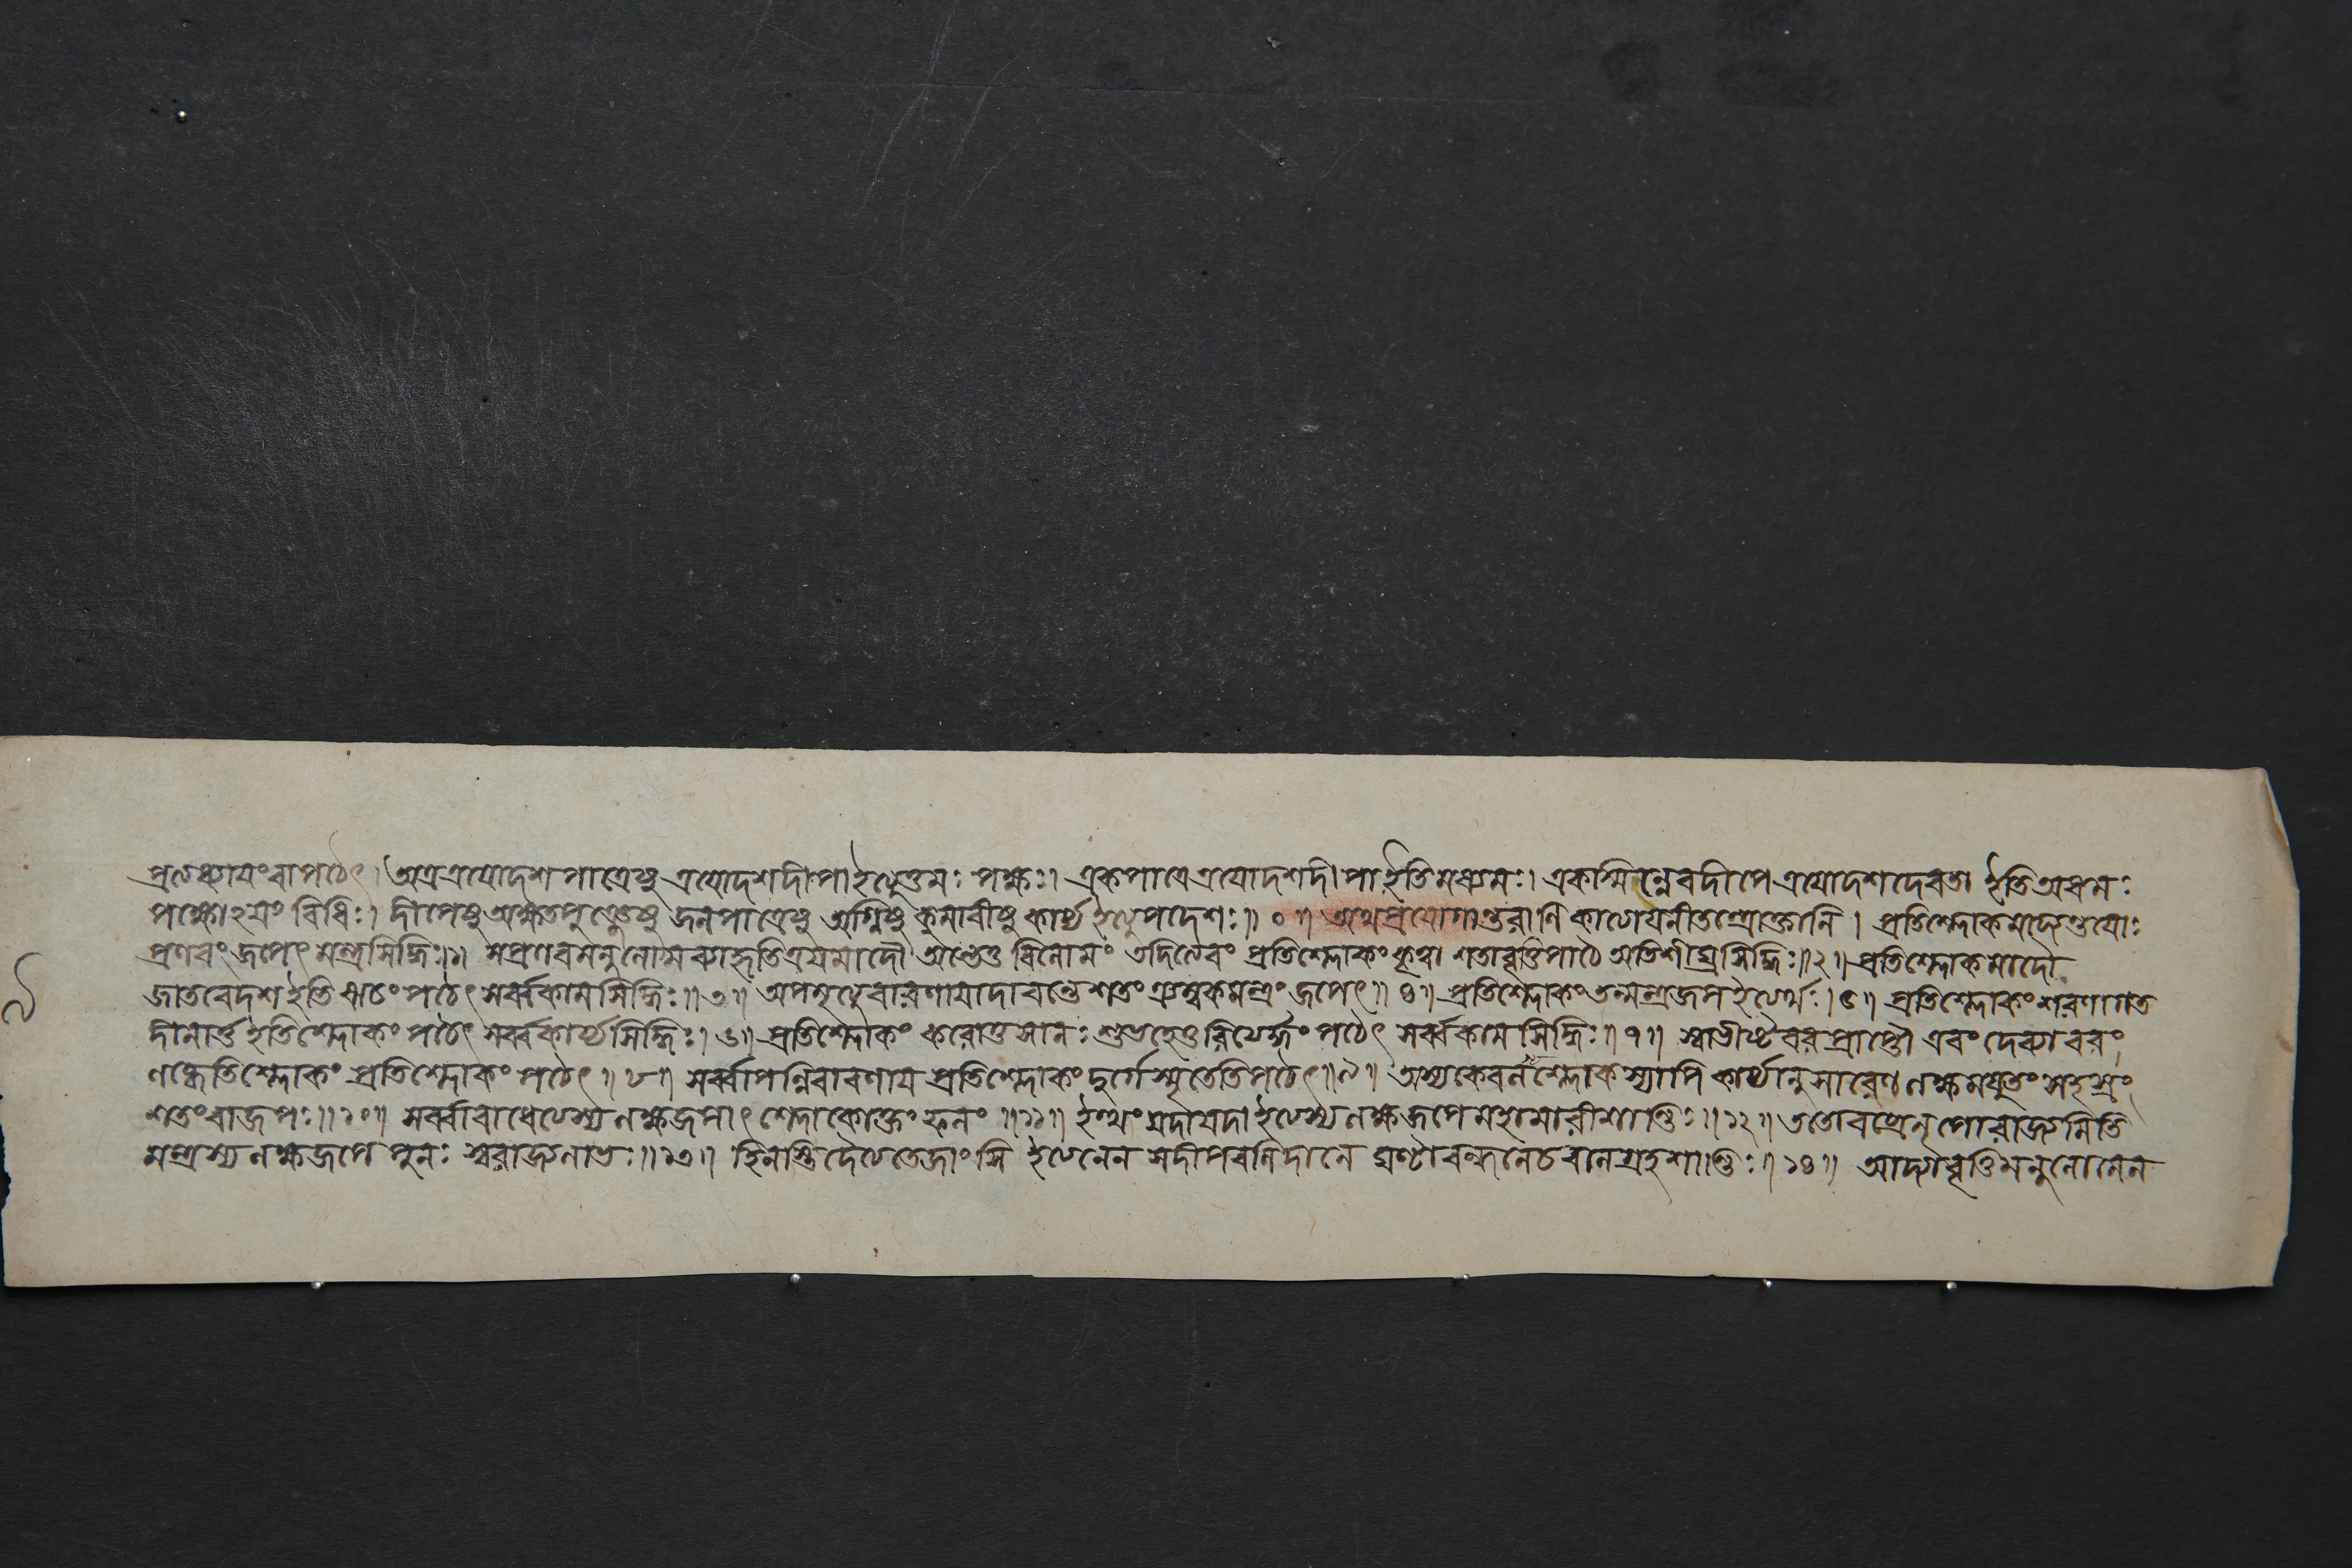 প্রত্যেকাধ্যায়ং বা পঠেৎ। অত্র ত্রয়োদশ পাত্রেষু ত্রয়োদশদীপা ইত্যুত্তমঃ পক্ষঃ। একপাত্রে ত্রয়োদশদীপা ইতি মধ্যমঃ। একস্মিন্নেব দীপে ত্রয়োদশ দেবতা ইতি অধমঃ
পক্ষোঽয়ং বিধিঃ। দীপেষু অক্ষতপুঞ্জেষু জলপাত্রেষু অগ্নিষু কুমারীষু কার্য্য ইত্যুপদেশঃ॥ ০॥ অথ প্রয়োগান্তরাণি কাত্যায়নীতন্ত্রোক্তানি। প্রতিশ্লোকমাদ্যন্তয়োঃ
প্রণবং জপেৎ মন্ত্রসিদ্ধিঃ॥১॥ সপ্রণবমনুলোমব্যাহৃতিত্রয়মাদৌ অন্তে তু বিলোমং তদিত্যেবং প্রতিশ্লোকং কৃত্বা শতাবৃত্তিপাঠে অতিশীঘ্রসিদ্ধিঃ॥২॥ প্রতিশ্লোকমাদৌ
জাতবেদশ ইতি ঋচং পঠেৎ সর্ব্বকামসিদ্ধিঃ॥৩॥ অপমৃত্যুবারণায়াদাবন্তে শতং ত্র্যম্বকমন্ত্রং জপেৎ॥ ৪॥ প্রতিশ্লোকং তন্মন্ত্রজপ ইত্যেকে॥৫॥ প্রতিশ্লোকং শরণাগত
দীনার্ত্ত ইতি শ্লোকং পঠেৎ সর্ব্বকার্য্যসিদ্ধিঃ॥৬॥ প্রতিশ্লোকং করোতু সা নঃ শুভহেতুরিত্যর্দ্ধং পঠেৎ সর্ব্বকামসিদ্ধিঃ॥৭॥ স্বাভীষ্টবরপ্রাপ্তৌ এবং দেব্যা বরং
লব্ধ্বেতি শ্লোকং প্রতিশ্লোকং পঠেৎ॥ ৮॥ সর্ব্বাপন্নিবারণায় প্রতিশ্লোকং দুর্গে স্মৃতেতি পঠেৎ॥৯॥ অস্য কেবলশ্লোকস্যাপি কার্য্যানুসারেণ লক্ষমযুতং সহস্রং
শতং বা জপঃ॥১০॥ সর্ব্বাবাধেত্যস্য লক্ষজপাৎ শ্লোকোক্তং ফলং॥১১॥ ইত্থং যদা যদা ইত্যস্য লক্ষজপে মহামারীশান্তিঃ॥১২॥ ততো বব্রে নৃপো রাজ্যমিতি
মন্ত্রস্য লক্ষজপে পুনঃ স্বরাজ্যলাভঃ॥১৩॥ হিনস্তি দৈত্যতেজাংসি ইত্যনেন সদীপবলিদানে ঘণ্টাবন্ধনে চ বালগ্রহশান্তিঃ॥ ১৪॥ আদ্যাবৃত্তিমনুলোমেন